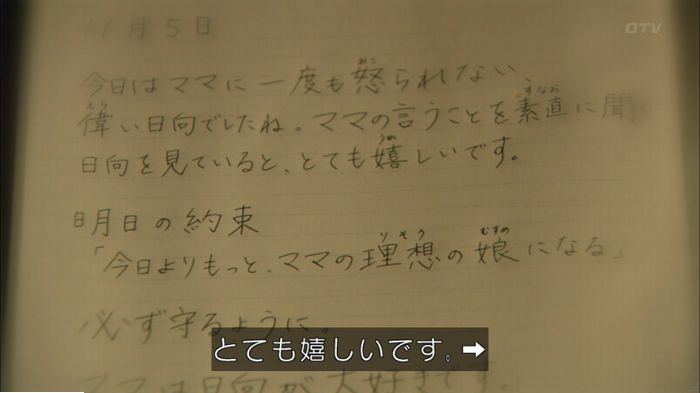 11月5日
OTV
今日はママに一度も怒られない
偉い日向でしたね。ママの言うことを素直に聞く
日向を見ていると、とても嬉しいです。
明日の約束
「今日よりもっと、ママの理想の娘になる」
必ず守るように。
ママは日向が大好きです。
とても嬉しいです。➡